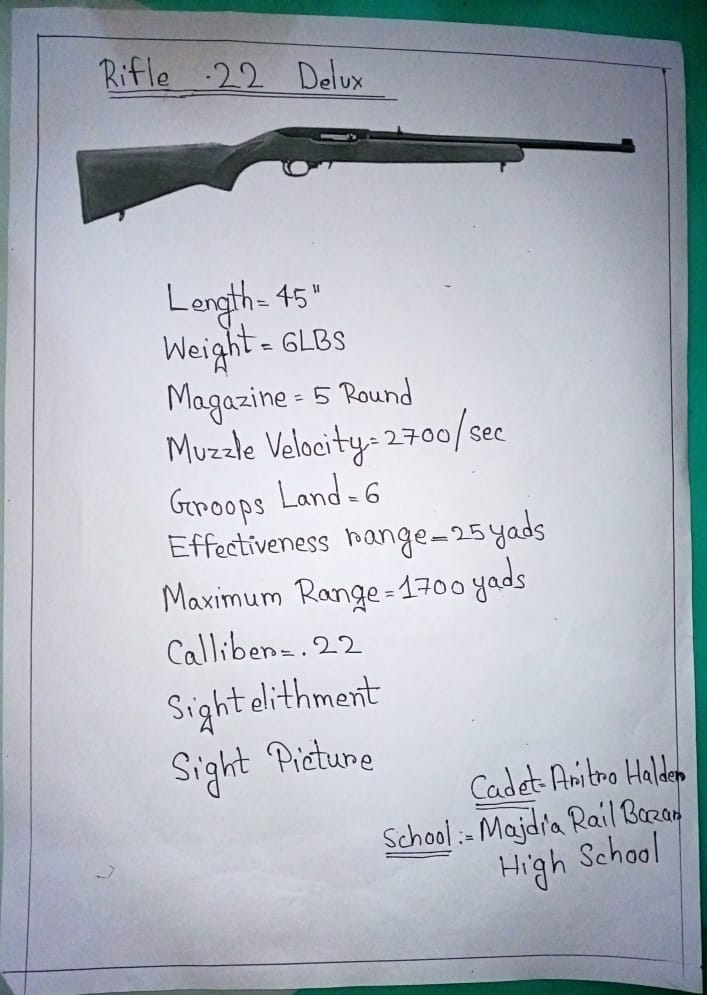 Rifle .22 Delux
Length = 45"
Weight = 6LBS
Magazine = 5 Round
Muzzle Velocity = 2700/sec
Groops Land = 6
Effectiveness range = 25 yads
Maximum Range = 1700 yads
Calliber = .22
Sight elithment
Sight Picture
Cadet - Aritro Halder
School := Majdia Rail Bazar
High School